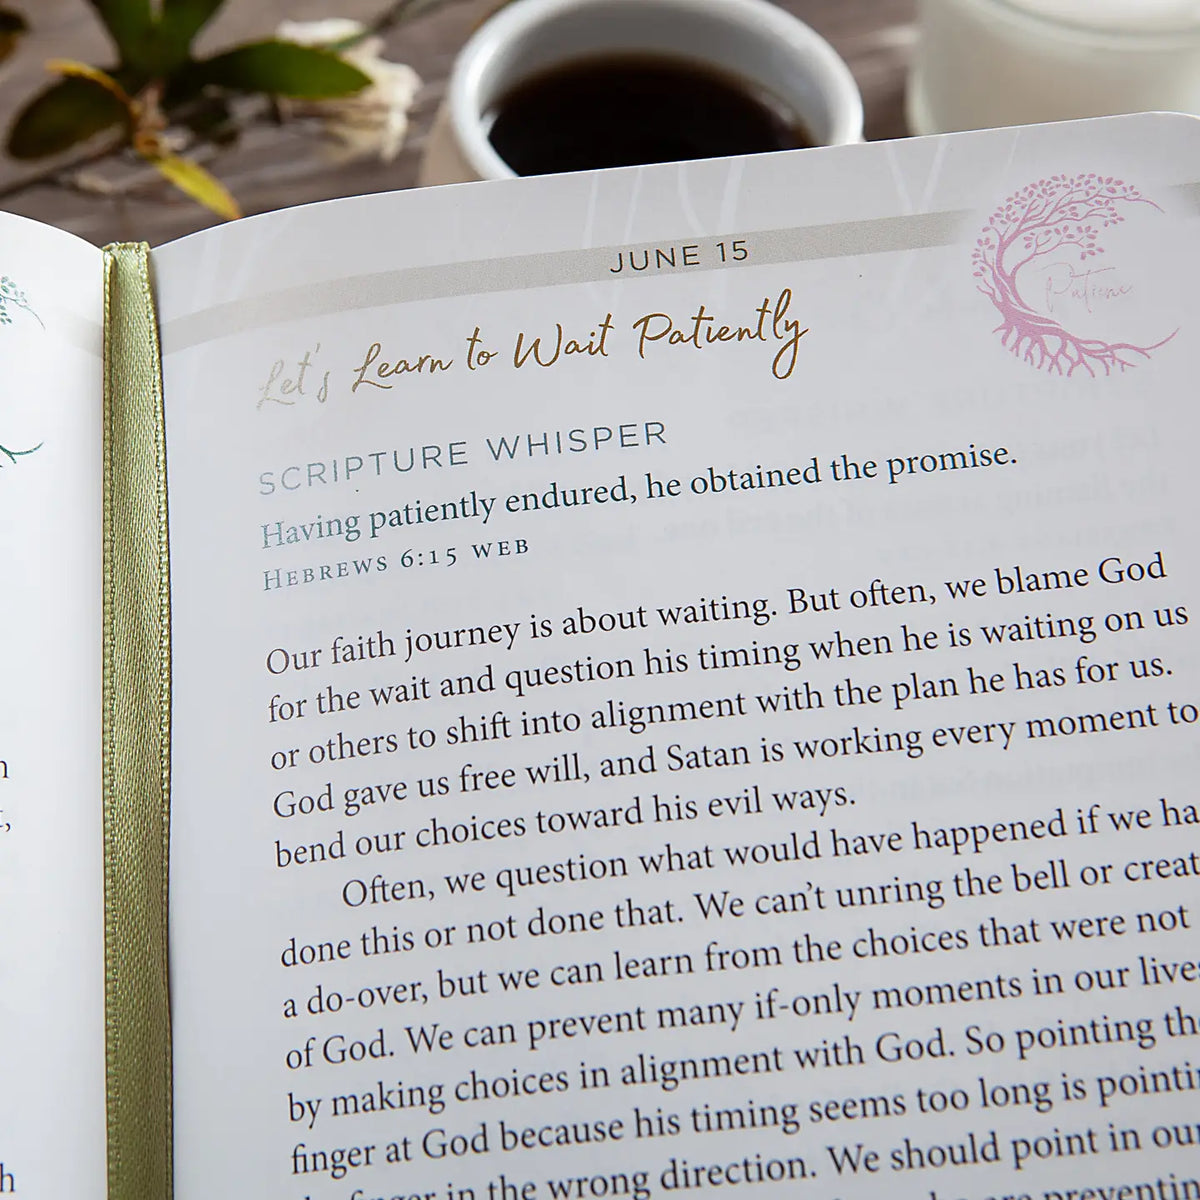 JUNE 15
Patience
Let's Learn to Wait Patiently
SCRIPTURE WHISPER
Having patiently endured, he obtained the promise.
HEBREWS 6:15 WEB
Our faith journey is about waiting. But often, we blame God
for the wait and question his timing when he is waiting on us
or others to shift into alignment with the plan he has for us.
God gave us free will, and Satan is working every moment to
bend our choices toward his evil ways.
Often, we question what would have happened if we ha
done this or not done that. We can't unring the bell or creat
a do-over, but we can learn from the choices that were not
of God. We can prevent many if-only moments in our lives
by making choices in alignment with God. So pointing the
finger at God because his timing seems too long is pointin
finger in the wrong direction. We should point in our
preventin